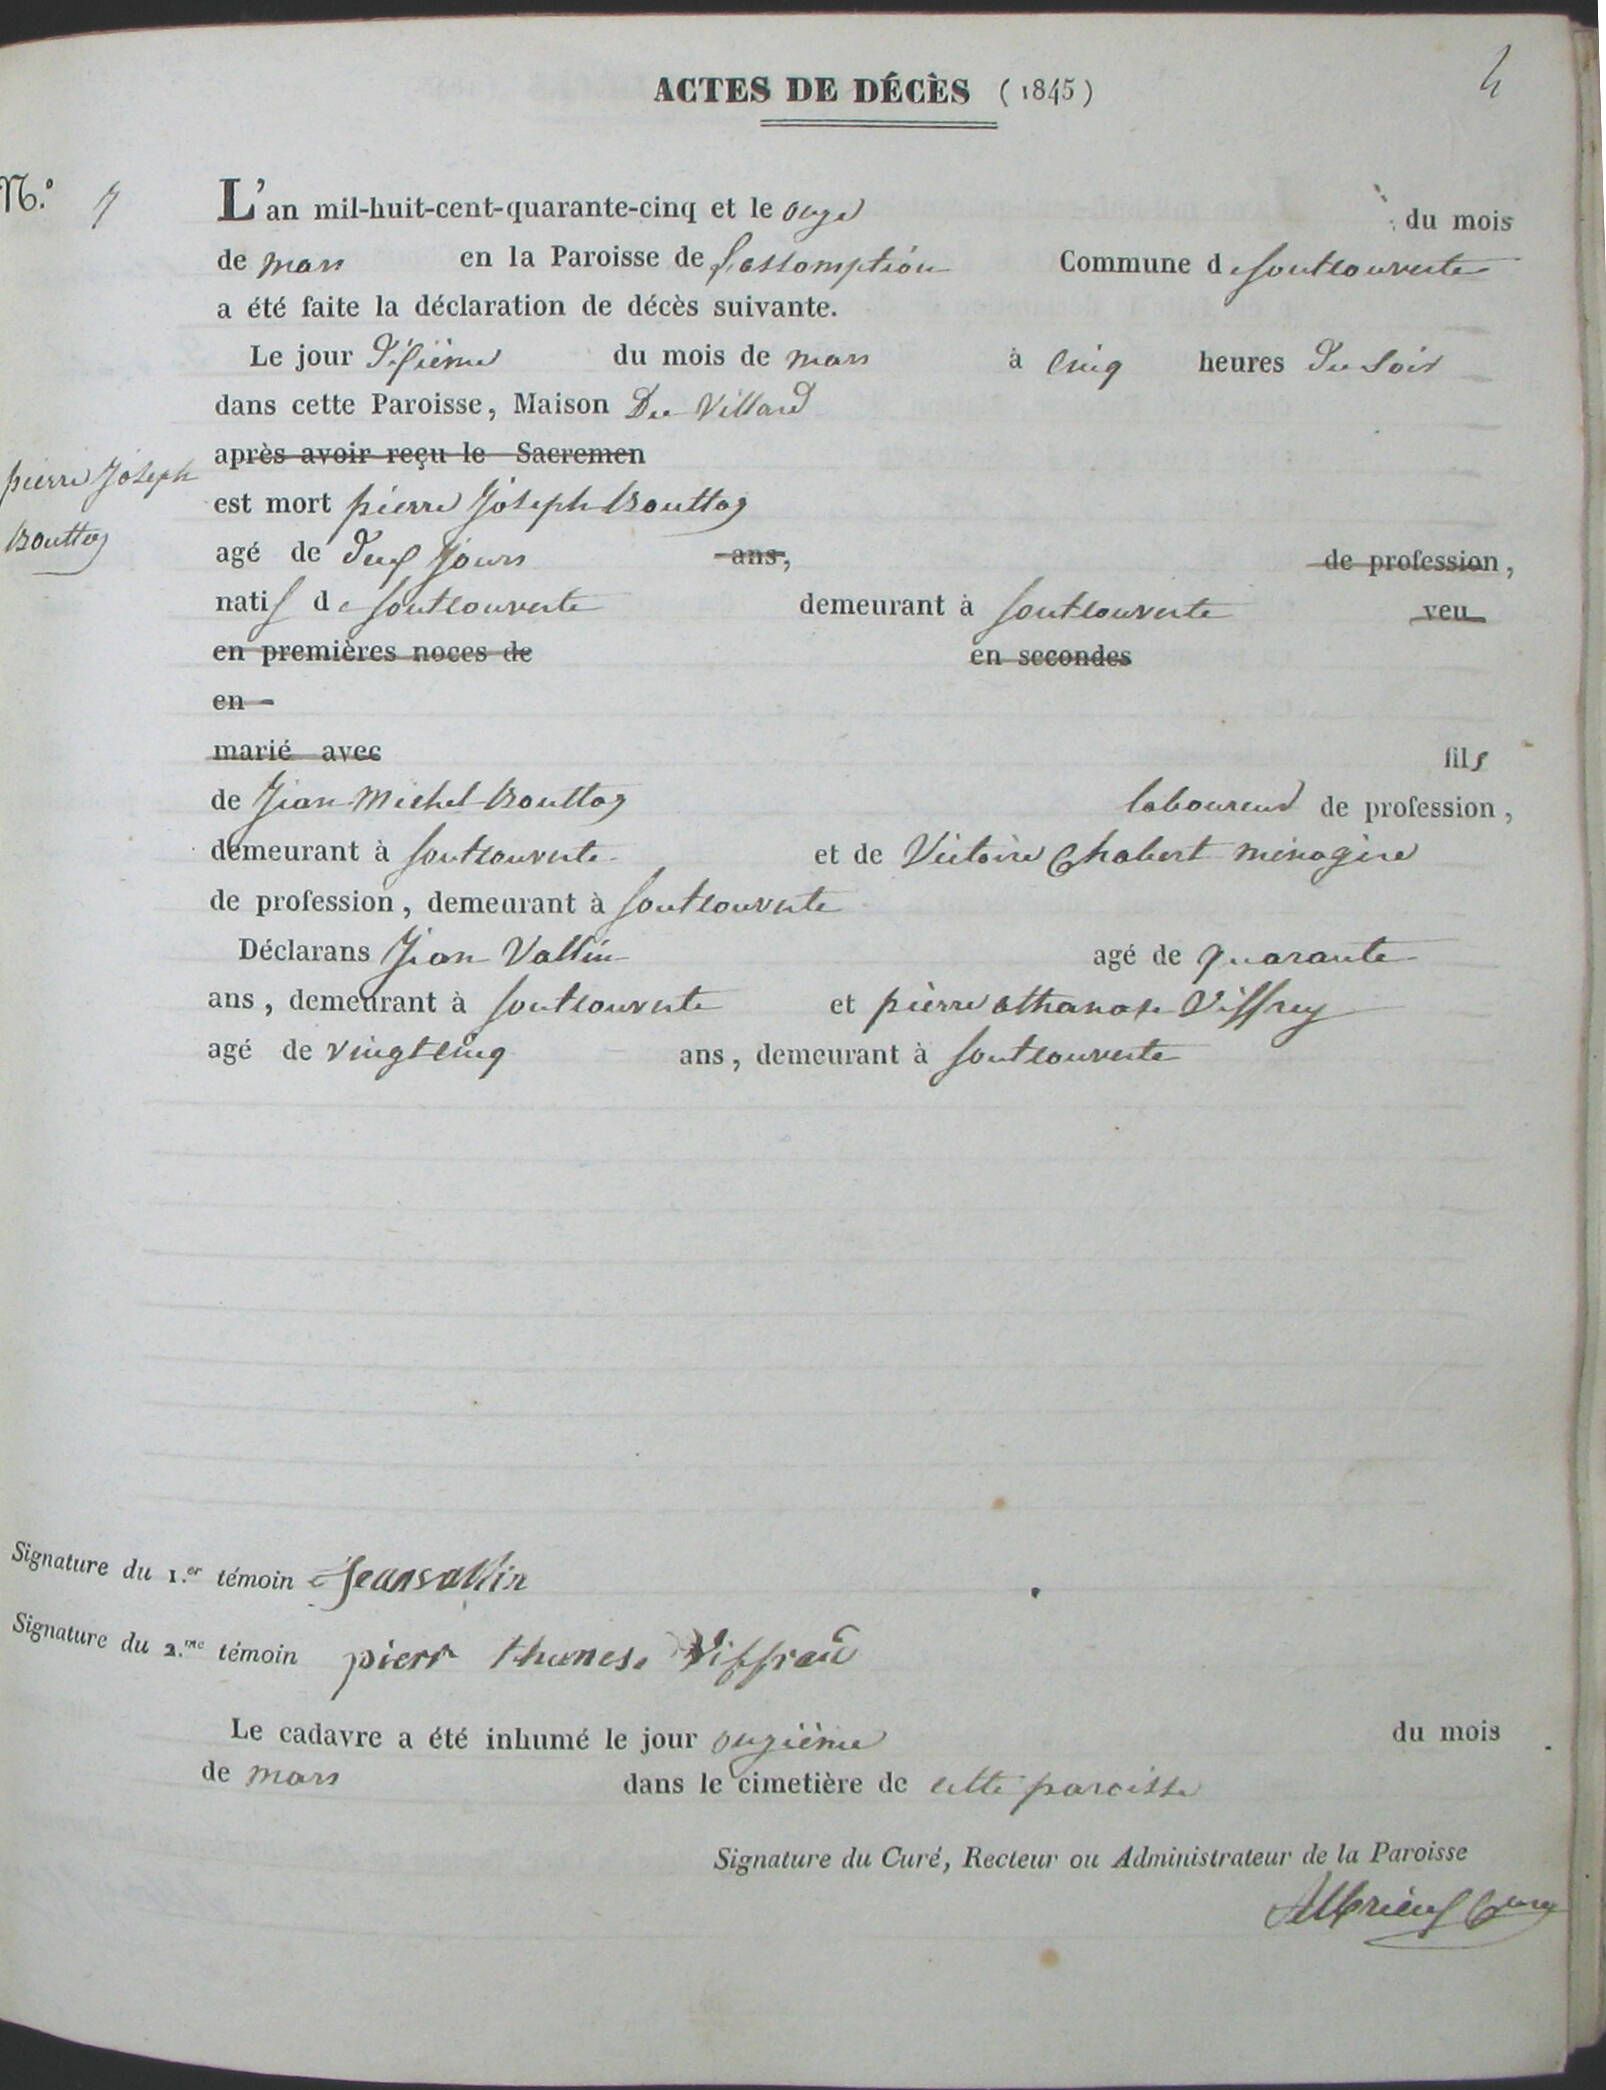 ACTES DE DÉCÈS (1845)
4
N.° 7
L'an mil-huit-cent-quarante-cinq et le onze du mois
de mars en la Paroisse de l'assomption Commune de fontcouverte
a été faite la déclaration de décès suivante.
Le jour dixième du mois de mars à cinq heures du soir
dans cette Paroisse, Maison Du Villard
après avoir reçu le Sacremen
pierre Joseph
Bouttaz
est mort pierre Joseph Bouttaz
agé de deux jours ans, de profession,
natif de fontcouverte demeurant à fontcouverte veu
en premières noces de en secondes
en
marié avec fils
de Jean Michel Bouttaz laboureur de profession,
demeurant à fontcouverte et de Victoire Chabert ménagère
de profession, demeurant à fontcouverte
Déclarans Jean Vallin agé de quarante
ans, demeurant à fontcouverte et pierre athanase Viffrey
agé de vingt cinq ans, demeurant à fontcouverte
Signature du 1.er témoin Jean vallin
Signature du 2.me témoin pierr thanese Viffrai
Le cadavre a été inhumé le jour onzième du mois
de mars dans le cimetière de cette paroisse
Signature du Curé, Recteur ou Administrateur de la Paroisse
Albrieux Curé